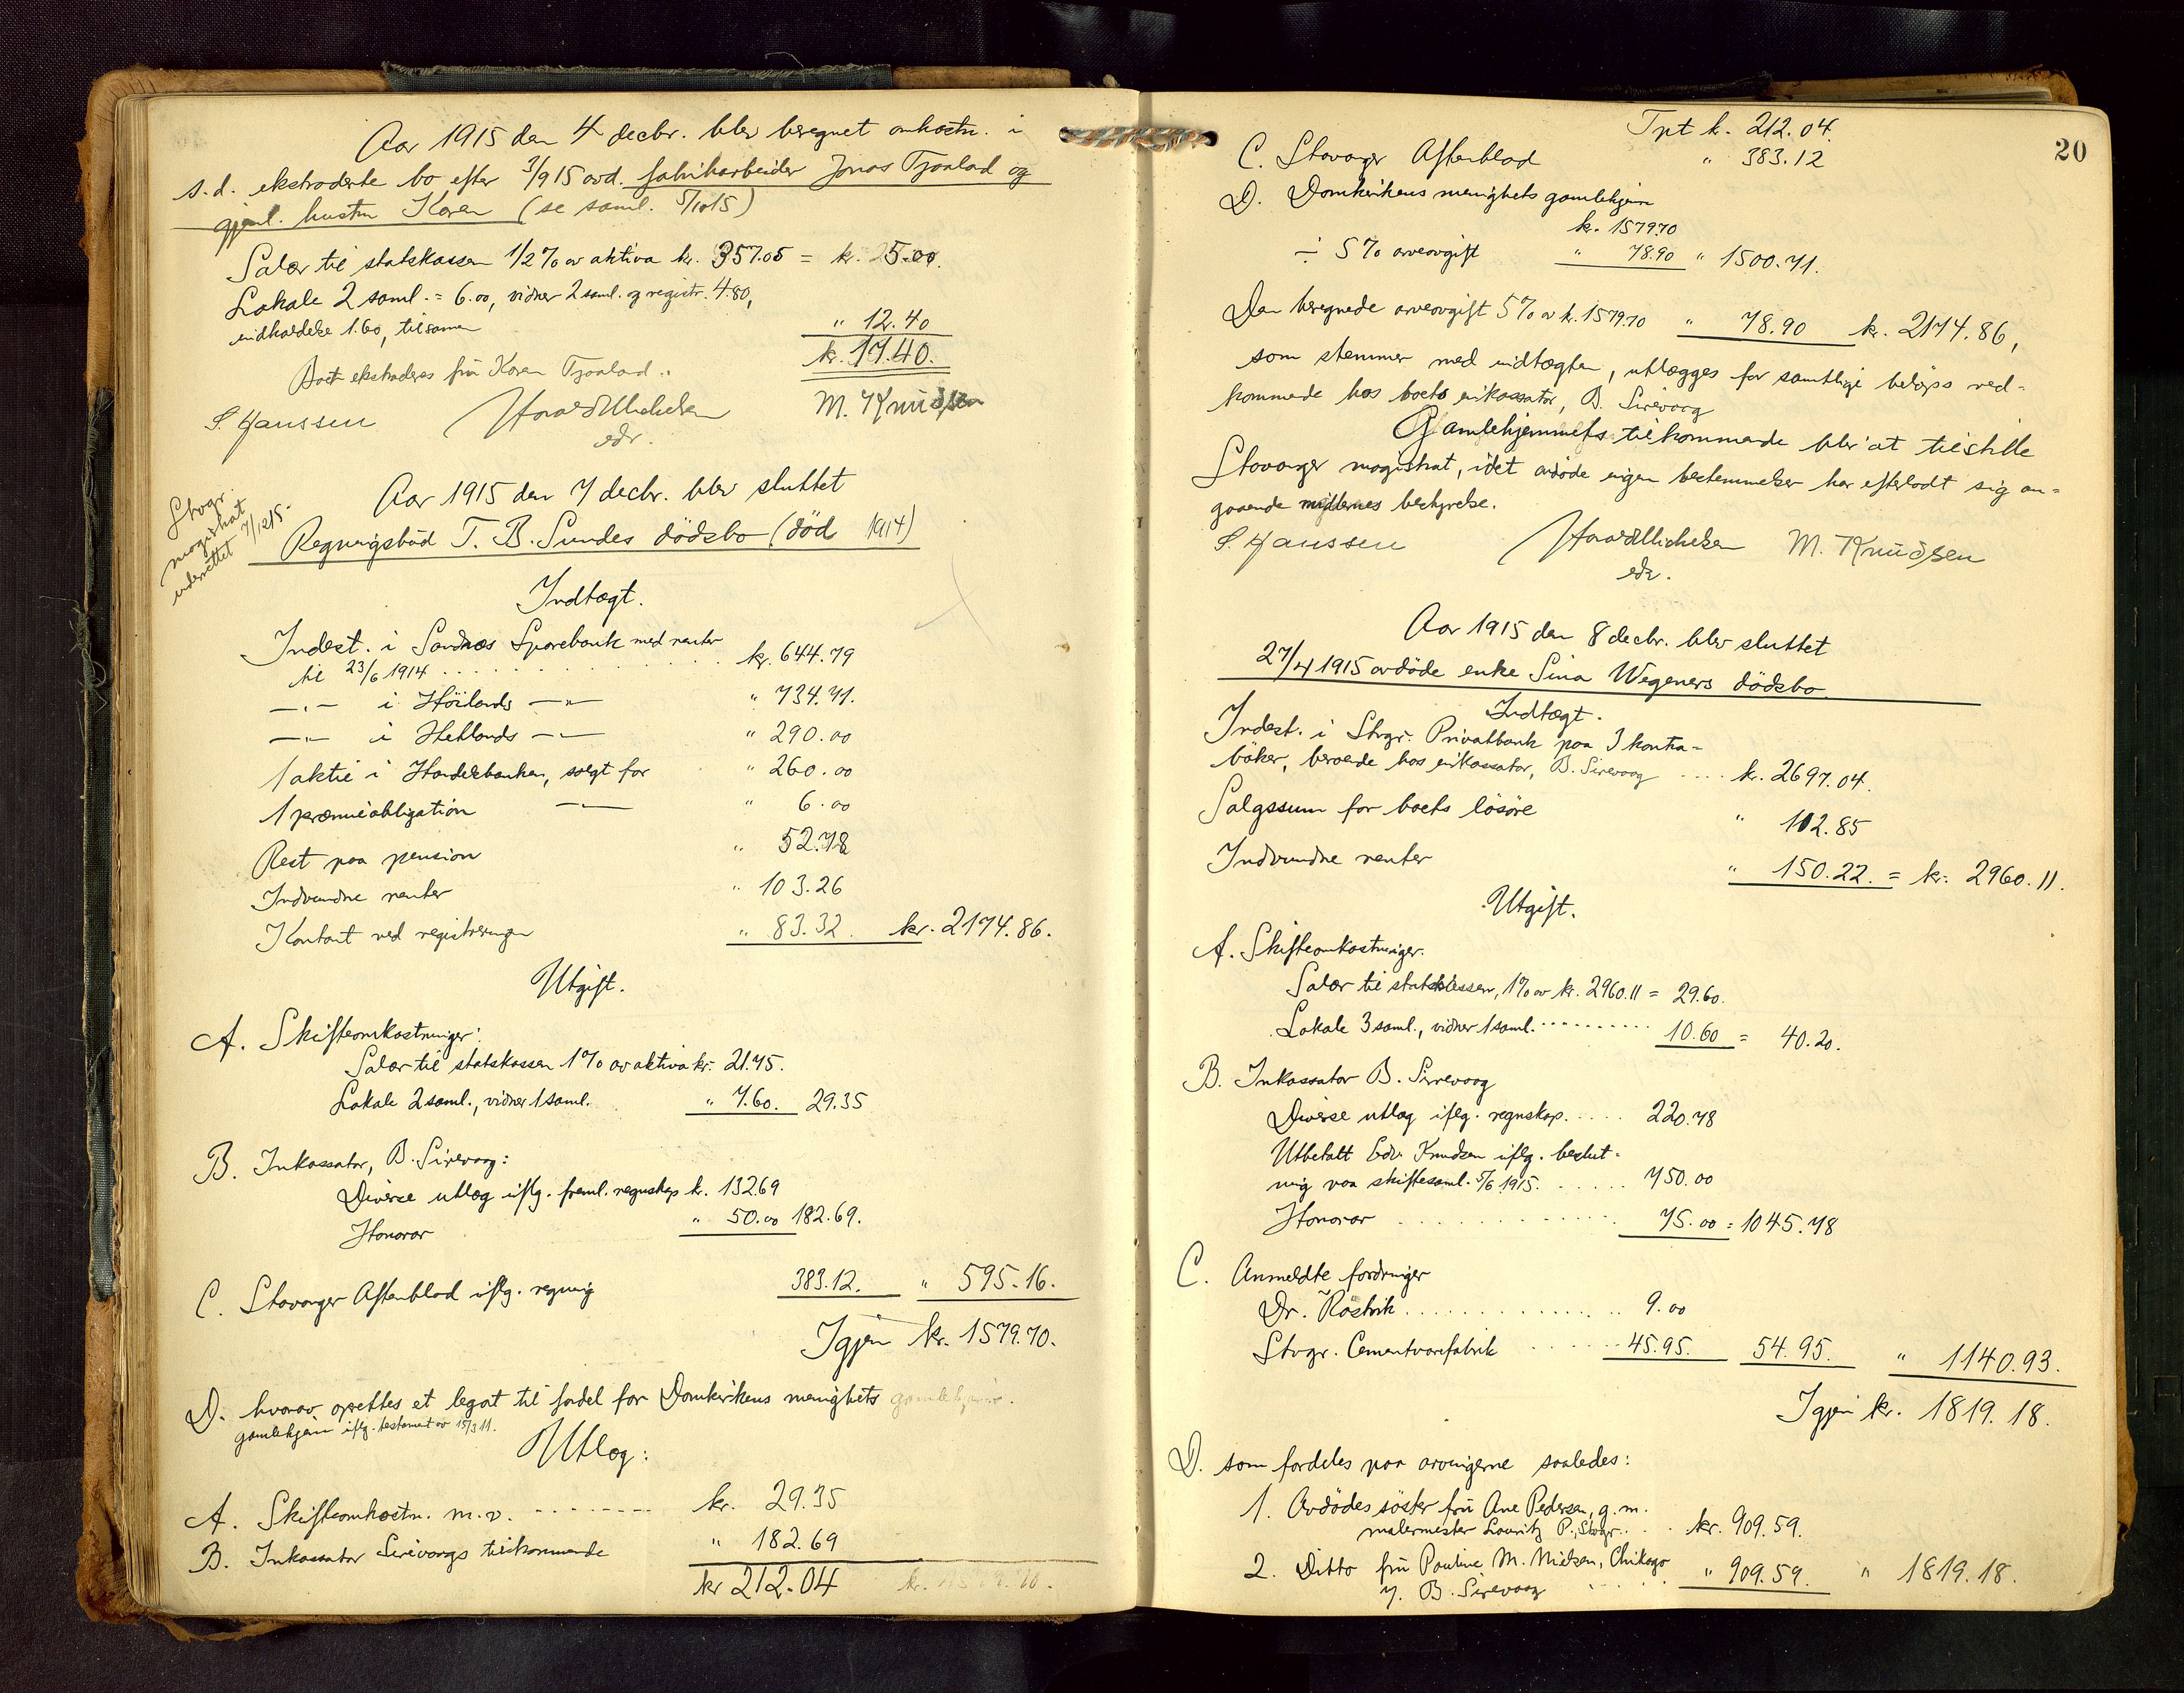 Aar 1915 den 4 decbr. blev beregnet omkostn. i
s.d. ekstraderte bo efter 3/9 15 avd. fabrikarbeider Jonas Tjaalad og
gjenl. hustru Karen (se saml. 5/10 15)
Salær til statskassen 1/2 % av aktiva kr. 357.05 = kr. 5.00.
Lokale 2 saml. = 6.00, vidner 2 saml. og registr. 4.80,
indkaldelse 1.60, tilsamen " 12.40
kr. 17.40.
Boet ekstraderes fru Karen Tjaalad.
S. Hanssen M. Knudsen
edr.
Stvgr.
magistrat
underrettet 7/12 15.
Aar 1915 den 7 decbr. blev sluttet
Regningsbud T. B. Sundes dödsbo (död 1914)
Indtægt.
Indest. i Sandnæs Sparebank med renter
til 23/6 1914 . . . . . kr. 644.79
—"— i Höilands —"— " 734.71.
—"— i Hetlands —"— " 290.00
1 aktie i Handelsbanken, solgt for " 260.00
1 præmieobligation —"— " 6.00
Rest paa pension " 52.78
Indvundne renter " 103.26
Kontant ved registreringen " 83.32. kr. 2174.86.
Utgift.
A. Skifteomkostninger:
Salær til statskassen 1% av aktiva kr. 21.75.
Lokale 2 saml., vidner 1 saml. " 7.60. 29.35
B. Inkassator, B. Sirevaag:
Diverse utlæg iflg. freml. regnskap kr. 132.69
Honorar " 50.00 182.69.
C. Stavanger Aftenblad iflg. regning 383.12. " 595.16.
Igjen kr. 1579.70.
D. hvorav oprettes et legat til fordel for Domkirkens menighets gamlehjem.
gamlehjem iflg. testament av 15/3 11.
Utlæg:
A. Skifteomkostn. m.v. - - - - - - kr. 29.35
B. Inkassator Sirevaags tilkommende " 182.69
kr 212.04
20
Tpt kr. 212.04.
C. Stavanger Aftenblad " 383.12
D. Domkirkens menighets gamlehjem
kr. 1579.70
÷ 5% arveavgift " 78.90 " 1500.71.
Den beregnede arveavgift 5% av kr. 1579.70 " 78.90 kr. 2174.86,
som stemmer med indtægten, utlægges for samtlige beløps ved-
kommende hos boets inkassator, B. Sirevaag
Gamlehjemmets tilkommende blev at tilstille
Stavanger magistrat, idet avdöde ingen bestemmelser har efterladt sig an-
gaaende midlernes bestyrelse.
S. Hanssen M. Knudsen
edr.
Aar 1915 den 8 decbr. blev sluttet
27/4 1915 avdöde enke Sina Wegeners dödsbo
Indtægt.
Indest. i Stvgr. Privatbank paa 3 kontra-
böker, beroende hos inkassator, B. Sirevaag . . . . kr. 2697.04.
Salgssum for boets lösöre " 112.85
Indvundne renter " 150.22. = kr. 2960.11.
Utgift.
A. Skifteomkostninger.
Salær til statskassen, 1% av kr. 2960.11 = 29.60.
Lokale 3 saml., vidner 1 saml. . . . . . . . 10.60 = 40.20.
B. Inkassator B. Sirevaag
Diverse utlæg iflg. regnskap. . . . . 220.78
Utbetalt Edv. Knudsen iflg. beslut-
ning paa skiftesaml. 5/6 1915. . . . . . 750.00
Honorar . . . . . . . . 75.00 = 1045.78
C. Anmeldte fordringer
Dr. Röstvik . . . . . . . . . . 9.00
Stvgr. Cementvarefabrik . . . . . . 45.95. 54.95. " 1140.93.
Igjen kr. 1819.18.
D. som fordeles paa arvingerne saaledes:
1. Avdödes söster fru Ane Pedersen, g.m.
malermester Lauritz P., Stvgr. . . . kr. 909.59.
2. Ditto fru Pauline M. Nielsen, Chikago " 909.59. " 1819.18.
B. Sirevaag